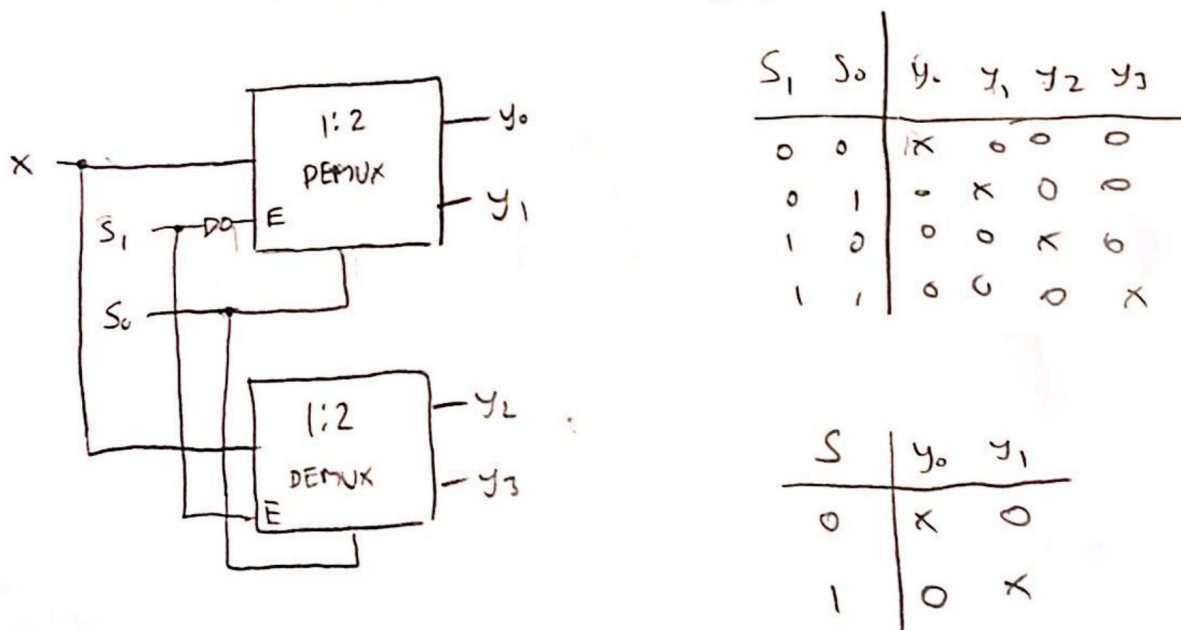 1:2
DEMUX
y₀
y₁
X
S₁
E
S₀
1:2
DEMUX
y₂
y₃
E
S₁ S₀ y₀ y₁ y₂ y₃
0 0 X 0 0 0
0 1 0 X 0 0
1 0 0 0 X 0
1 1 0 0 0 X
S y₀ y₁
0 X 0
1 0 X